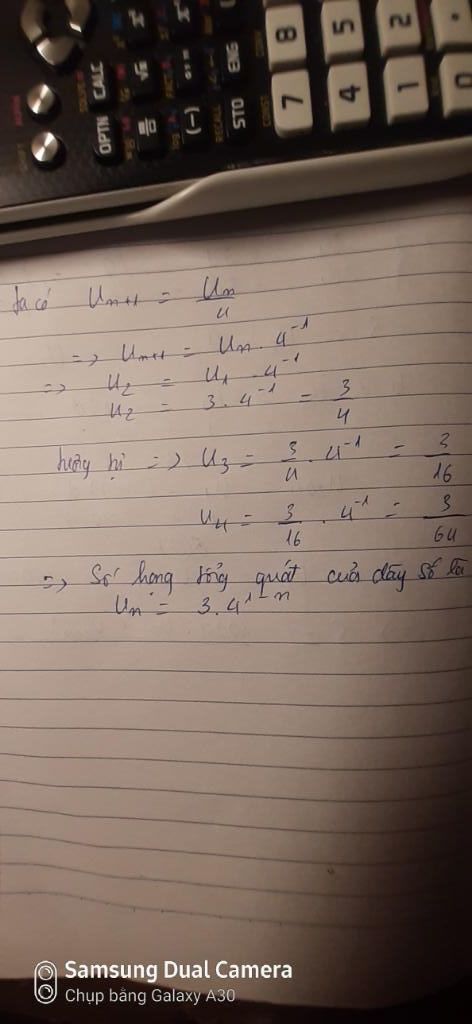 8 5 2 .
7 4 1 0
OPTN CALC
(-) STO ENG
RECALL
Ta có Uₙ₊₁ = Uₙ/4
=> Uₙ₊₁ = Uₙ . 4⁻¹
=> U₂ = U₁ . 4⁻¹
U₂ = 3 . 4⁻¹ = 3/4
tương tự => U₃ = 3/4 . 4⁻¹ = 3/16
U₄ = 3/16 . 4⁻¹ = 3/64
=> Số hạng tổng quát của dãy số là
Uₙ = 3.4¹⁻ⁿ
Samsung Dual Camera
Chụp bằng Galaxy A30